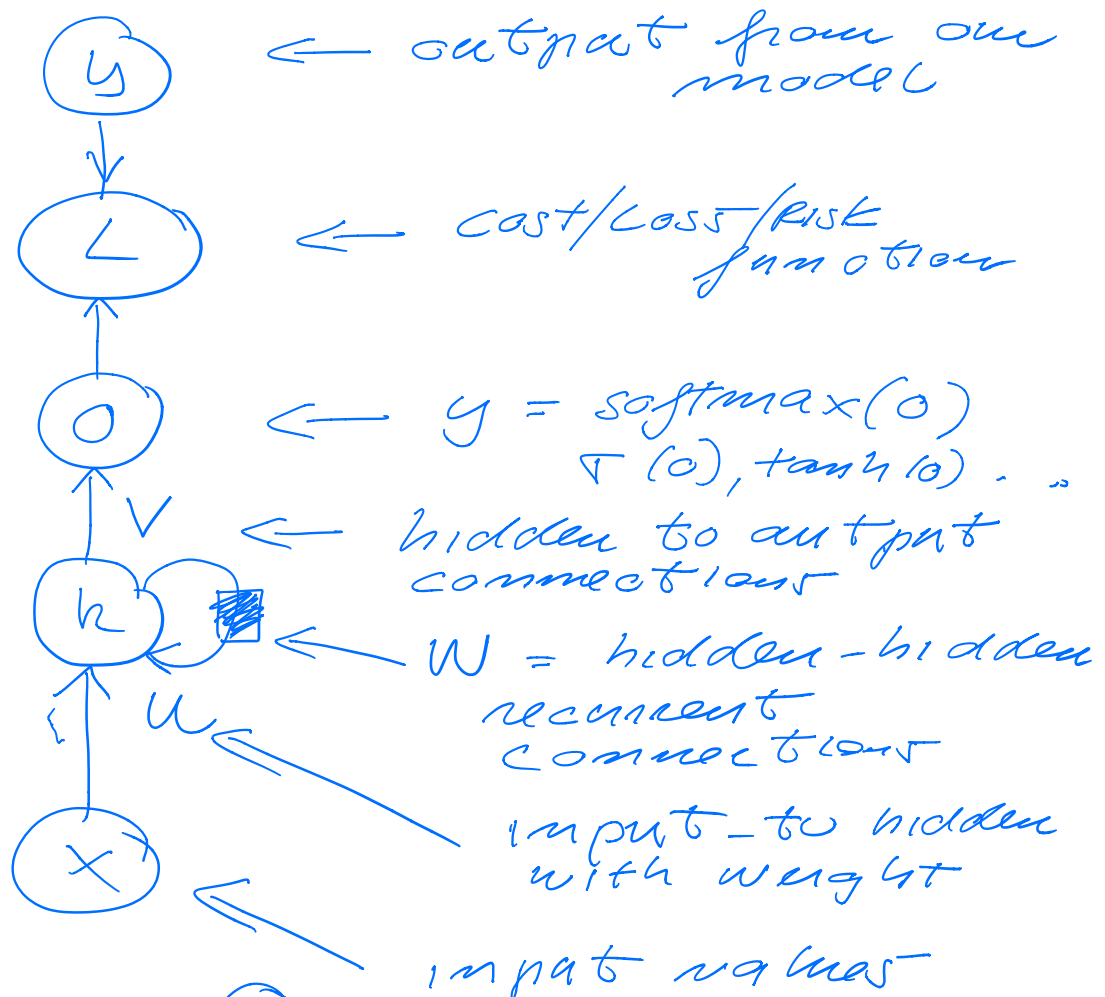 y
← output from our
model
L
← cost/loss/risk
function
o
← y = softmax(o)
σ(o), tanh(o) . ..
V
← hidden to output
connections
h
W = hidden-hidden
recurrent
connections
U
input-to hidden
with weight
x
input values